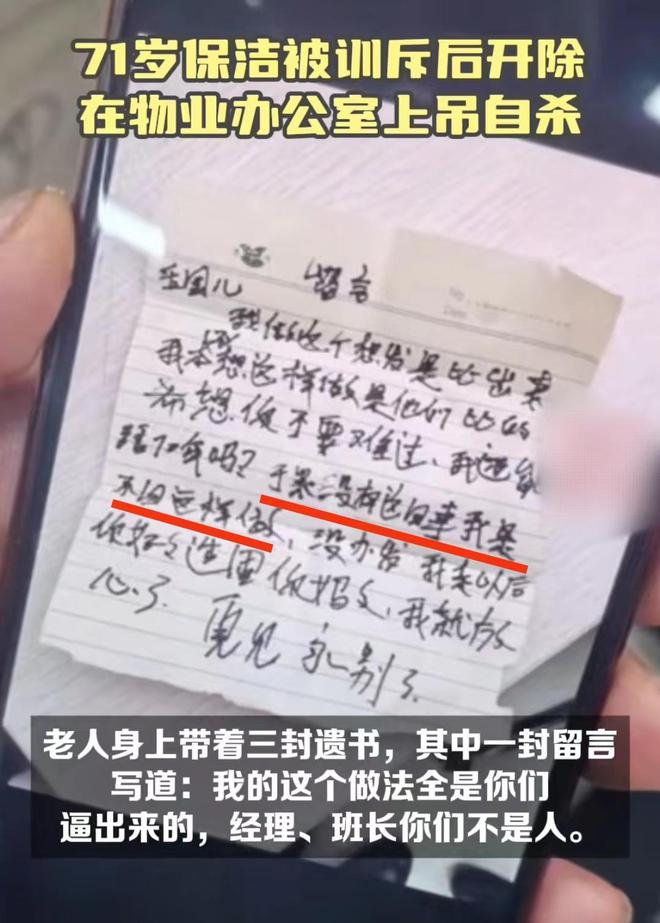 71岁保洁被训斥后开除
在物业办公室上吊自杀
留言
No
Date
我做这个想发是比出来
我本想这样做是他们比的
不要难过、我
吗？于果没有这回事我是
不会这样做、没办发我走以后
你好好造固你妈父、我就放
心了. 再见 永别了.
老人身上带着三封遗书，其中一封留言
写道：我的这个做法全是你们
逼出来的，经理、班长你们不是人。